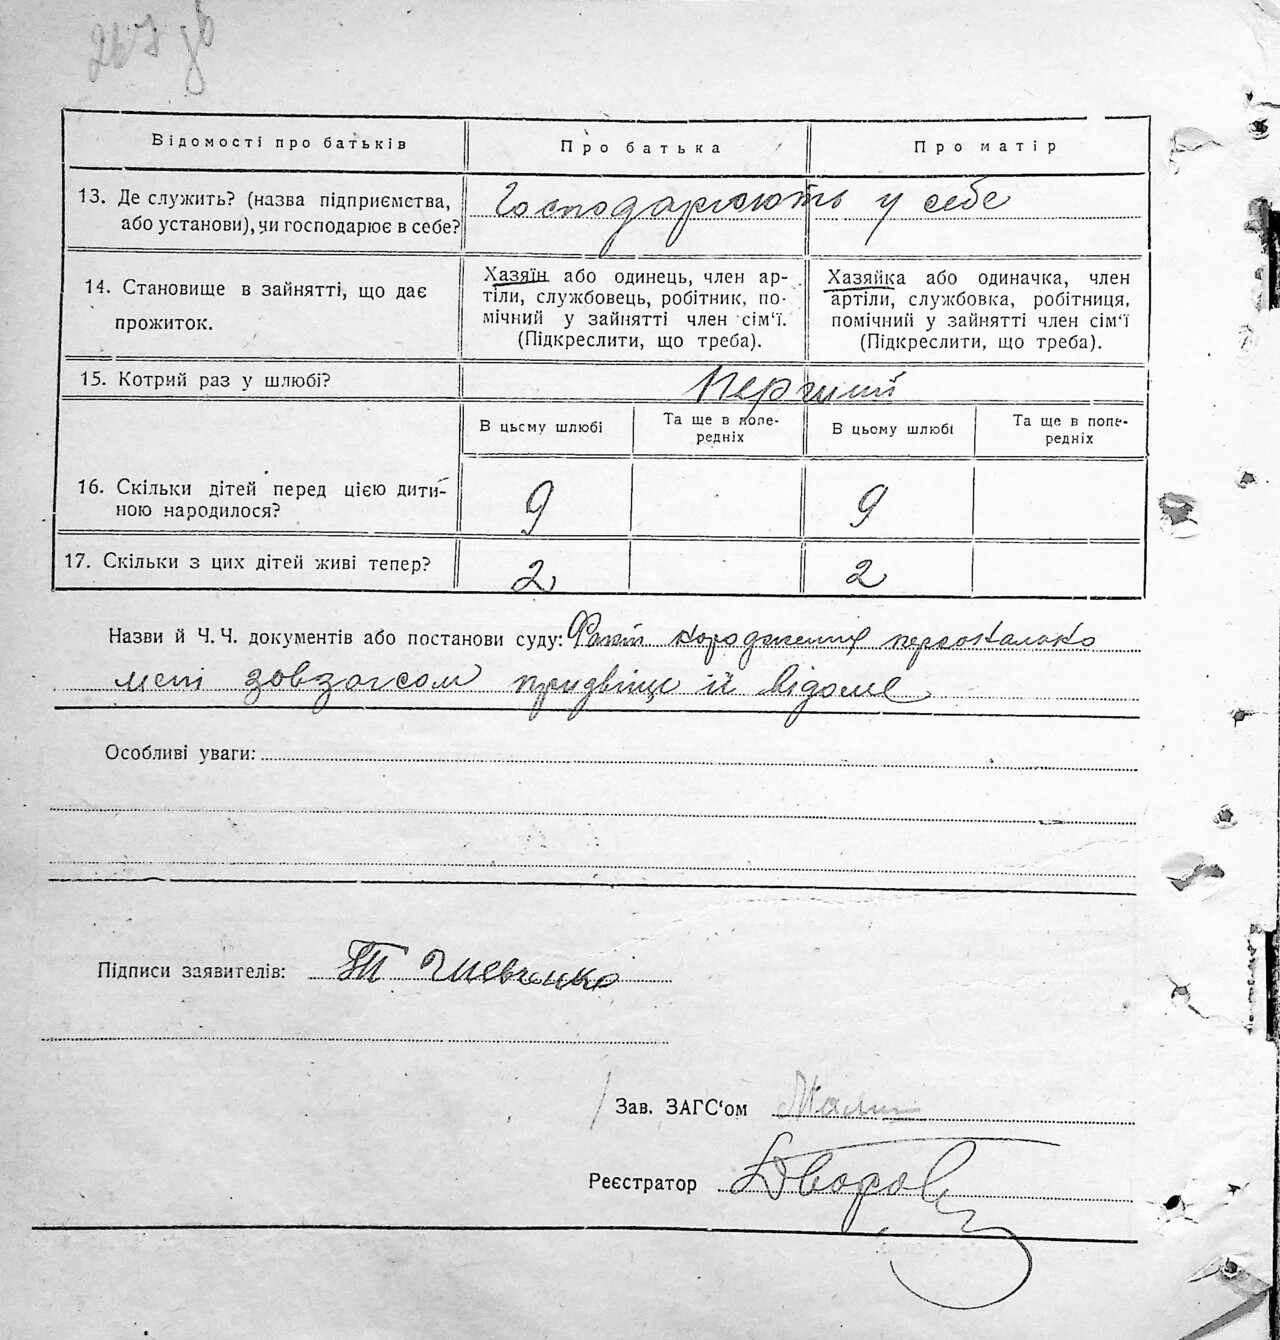 267 зв
Відомості про батьків
Про батька
Про матір
13. Де служить? (назва підприємства,
або установи), чи господарює в себе?
Господарюють у себе
14. Становище в зайнятті, що дає
прожиток.
Хазяїн або одинець, член ар-
тіли, службовець, робітник, по-
мічний у зайнятті член сім'ї.
(Підкреслити, що треба).
Хазяйка або одиначка, член
артіли, службовка, робітниця,
помічний у зайнятті член сім'ї
(Підкреслити, що треба).
15. Котрий раз у шлюбі?
Перший
В цьому шлюбі
Та ще в попе-
редніх
В цьому шлюбі
Та ще в попе-
редніх
16. Скільки дітей перед цією дити-
ною народилося?
9
9
17. Скільки з цих дітей живі тепер?
2
2
Назви й Ч. Ч. документів або постанови суду: Факт народження персонально
мені зовзагсом придвіще й відоме
Особливі уваги:
Підписи заявителів: Шевченко
Зав. ЗАГС'ом
Реєстратор